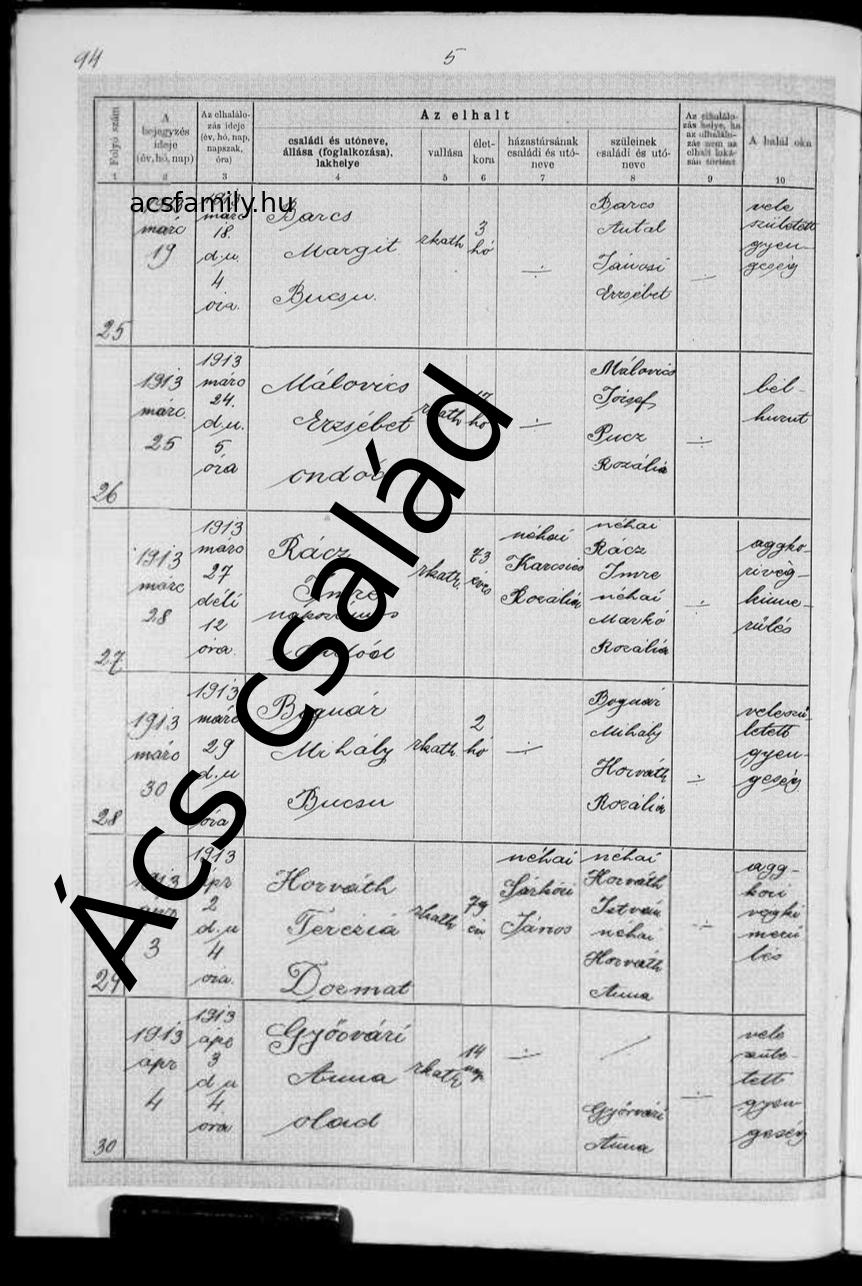 94
5
Folyó szám
A bejegyzés ideje (év, hó, nap)
Az elhalálozás ideje (év, hó, nap, napszak, óra)
Az elhalt
családi és utóneve, állása (foglalkozása), lakhelye
vallása
életkora
házastársának családi és utóneve
szüleinek családi és utóneve
A halál oka
1 2 3 4 5 6 7 8 9 10
acsfamily.hu
Ács család
25
márc
19
márc
18.
d.u.
4
óra.
Barcs
Margit
Bucsu.
rkath
3
hó
Barcs
Antal
Jánosi
Erzsébet
vele
született
gyen-
geség
26
1913
márc.
25
1913
márc
24.
d.u.
5
óra
Málovics
Erzsébet
ondód
rkath
17
hó
Málovics
József
Pucz
Rozália
bél-
hurut
27
1913
márc
28
1913
márc
27
déli
12
óra.
Rácz
Imre
napszámos
ondód
rkath.
73
éves
néhai
Karcsics
Rozália
néhai
Rácz
Imre
néhai
Markó
Rozália
aggko-
ri vég-
kime-
rülés
28
1913
márc
30
1913
márc
29
d.u
óra
Bognár
Mihály
Bucsu
rkath.
2
hó
Bognár
Mihály
Horváth
Rozália
veleszü-
letett
gyen-
geség
29
1913
3
1913
ápr
2
d.u
4
óra.
Horváth
Terézia
Dozmat
rkath
79
év
néhai
Sárközi
János
néhai
Horváth
István
néhai
Horváth
Anna
agg-
kori
végki
merü
lés
30
1913
apr
4
1913
ápr
3
d u
4
óra
Győrvári
Anna
olad
rkath
14
nap
Győrvári
Anna
vele
szüle-
tett
gyen-
geség